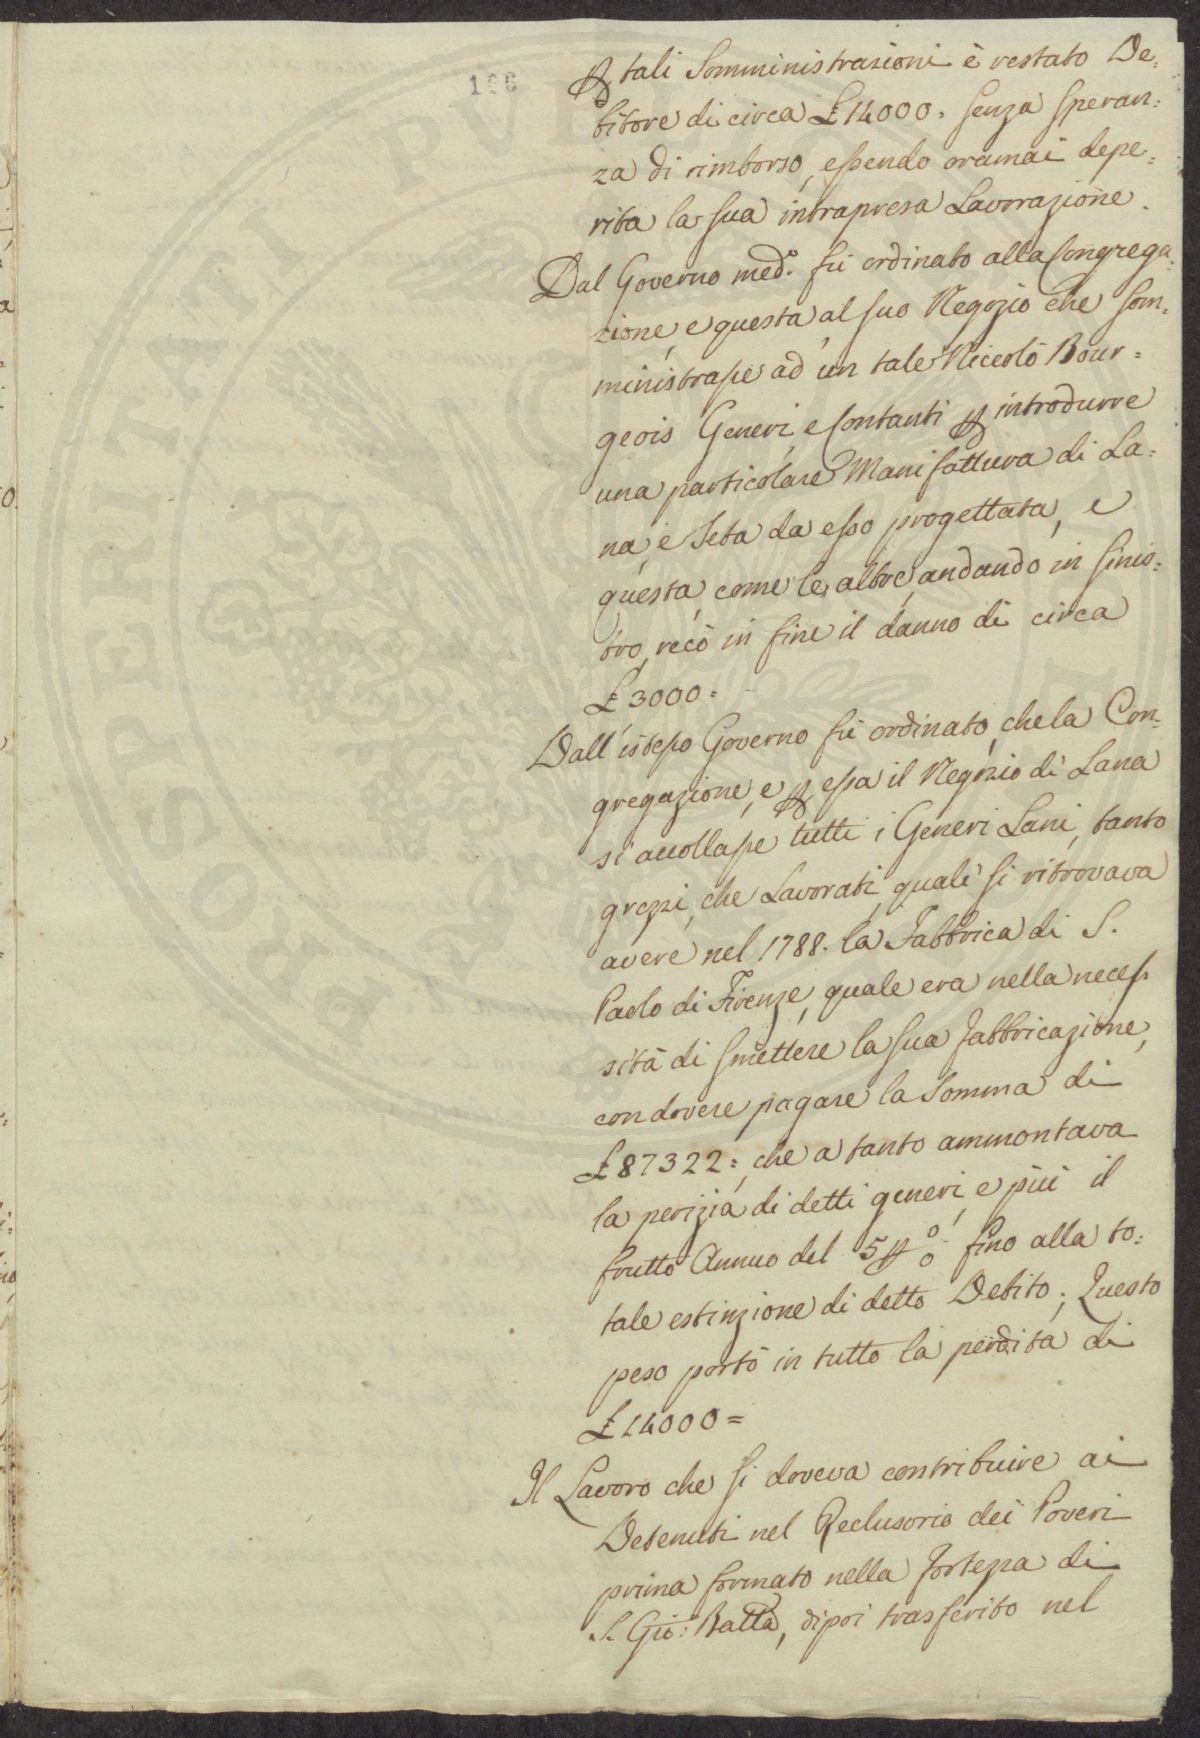 106
p tali Somministrazioni è restato De=
bitore di circa £ 14000. senza speran=
za di rimborso, essendo oramai depe=
rita la sua intrapresa Lavorazione.
Dal Governo med.° fù ordinato alla Congrega=
zione, e questa al suo Negozio che som=
ministrasse ad un tale Niccolò Bour=
geois Generi, e Contanti p introdurre
una particolare Manifattura di La=
na, e Seta da esso progettata, e
questa, come le altre, andando in sinis=
tro, recò in fine il danno di circa
£ 3000=
Dall'istesso Governo fù ordinato, che la Con=
gregazione, e p essa il Negozio di Lana
si accollasse tutti i Generi Lani, tanto
grezzi, che Lavorati, quali si ritrovava
avere nel 1788. la Fabbrica di S.
Paolo di Firenze, quale era nella neces=
sità di smettere la sua fabbricazione,
con dovere pagare la Somma di
£ 87322=, che a tanto ammontava
la perizia di detti generi, e più il
frutto Annuo del 5 p o/o fino alla to=
tale estinzione di detto Debito; Questo
peso portò in tutto la perdita di
£ 14000=
Il Lavoro che si doveva contribuire ai
Detenuti nel Reclusorio dei Poveri
prima formato nella Fortezza di
S. Gio: Batta, dipoi trasferito nel
SPEDALI
PVB